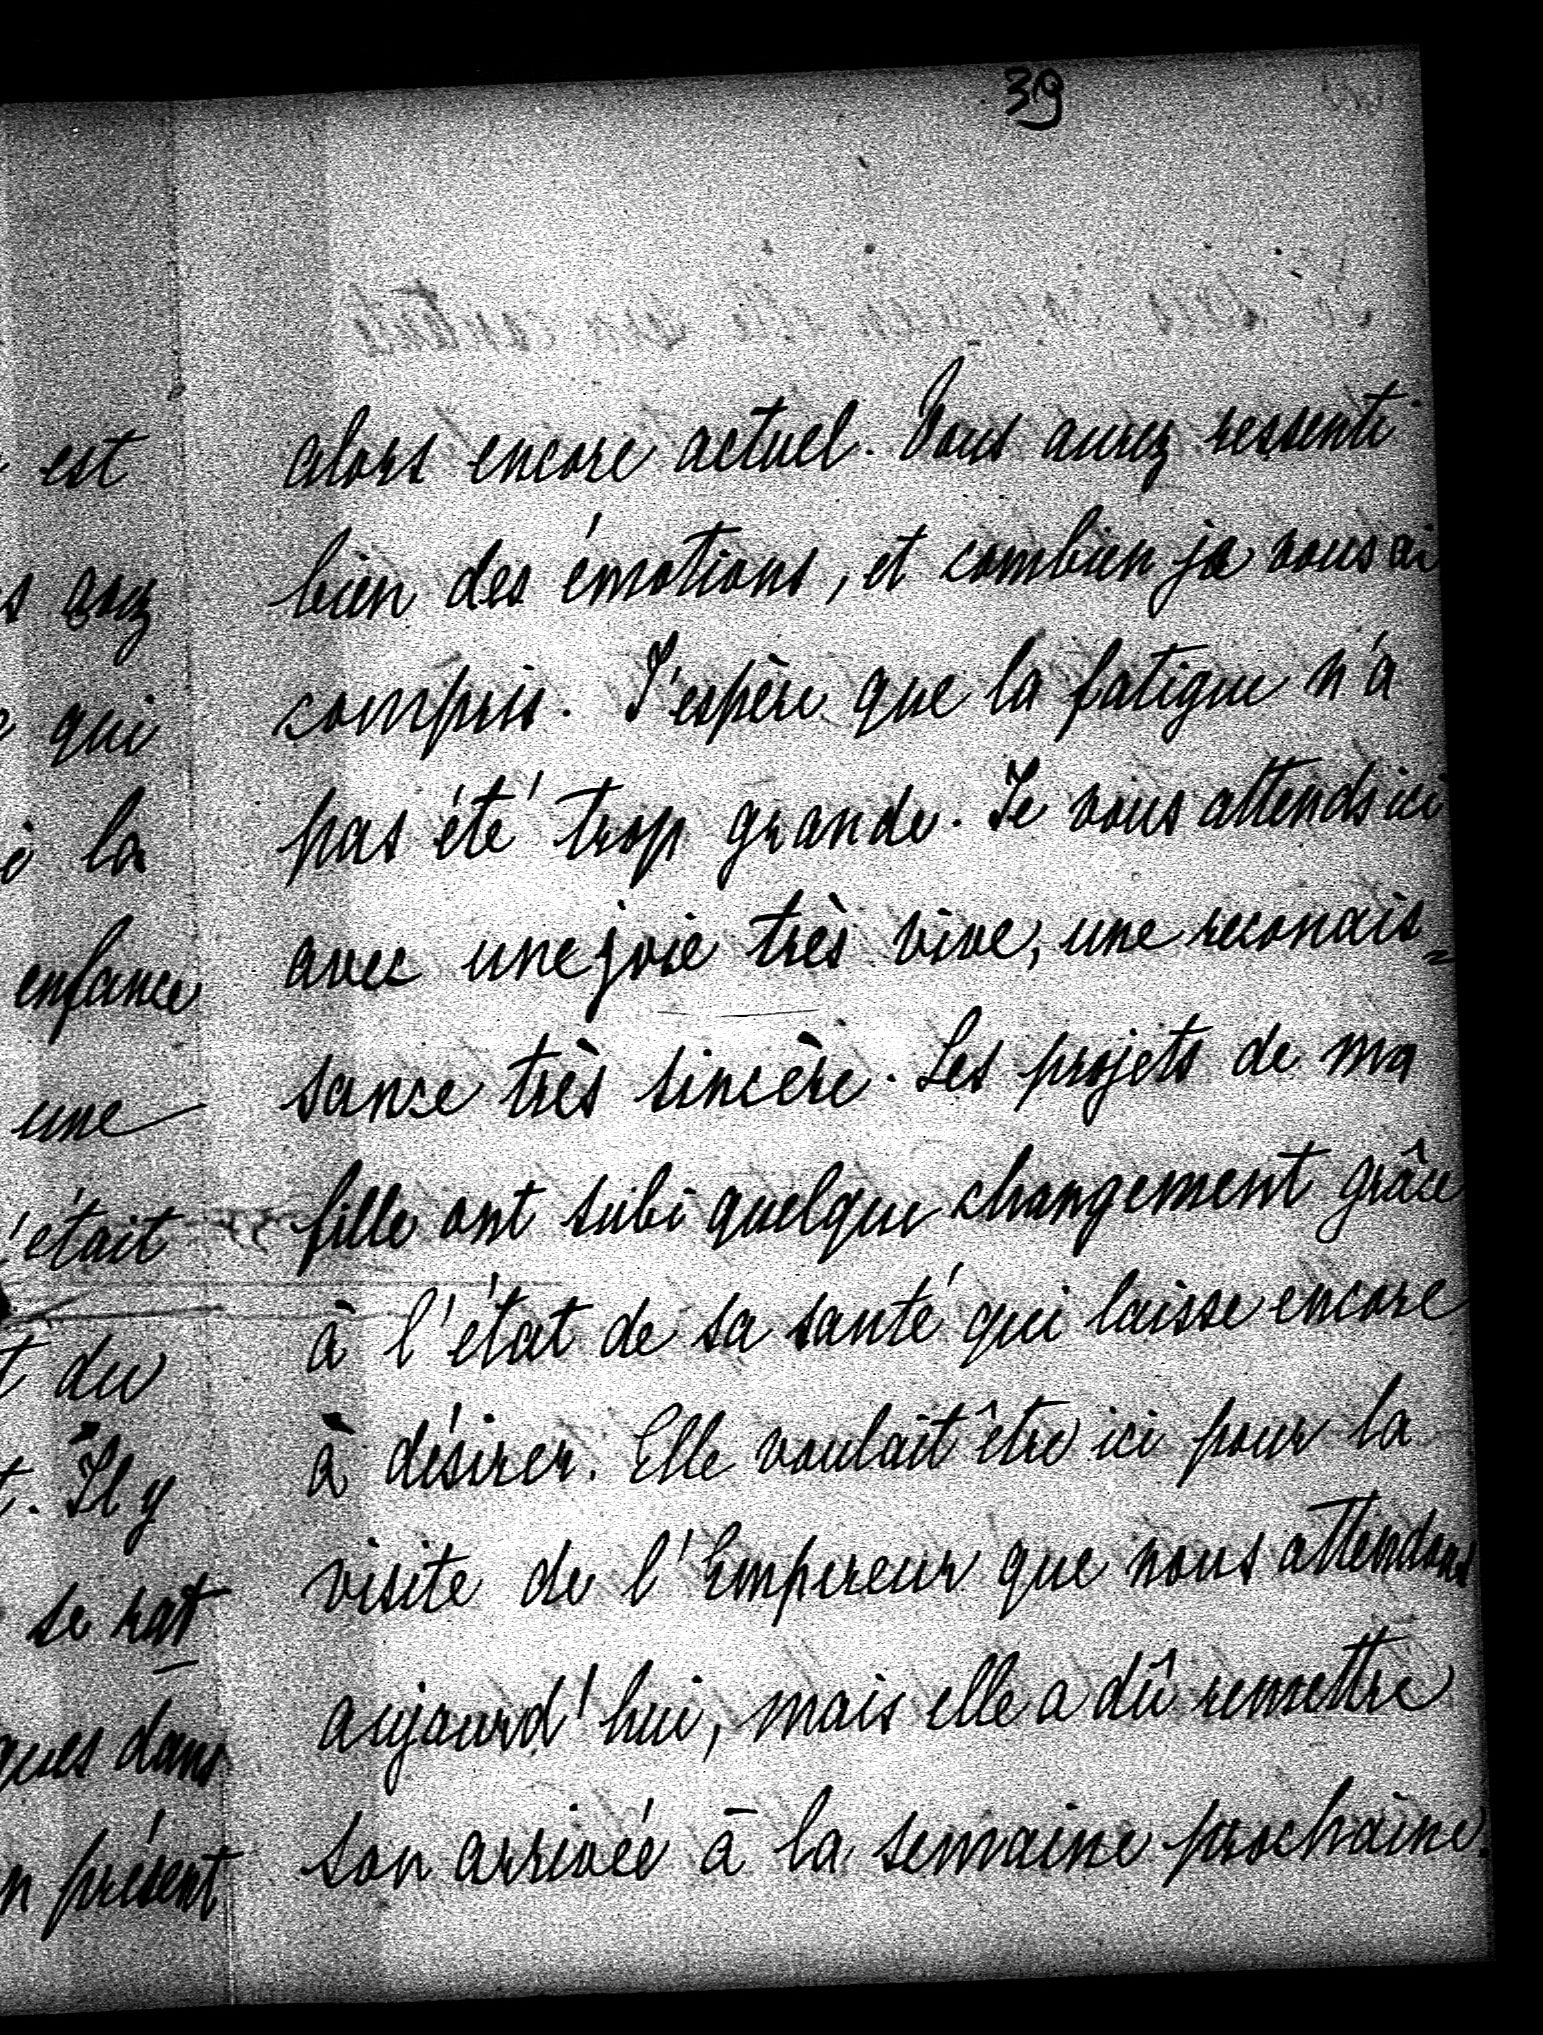 39
alors encore actuel. Vous aurez ressenti
bien des émotions, et combien je vous ai
compris. J'espère que la fatigue n'a
pas été trop grande. Je vous attends ici
avec une joie très vive, une reconais=
sance très sincère. Les projets de ma
fille ont subi quelque changement grâce
à l'état de sa santé qui laisse encore
à désirer. Elle voulait être ici pour la
visite de l'Empereur que nous attendons
aujourd'hui, mais elle a dû remettre
son arrivée à la semaine prochaine.
est
qui
la
enfance
une
était
du
Il y
se rat
dans
présent